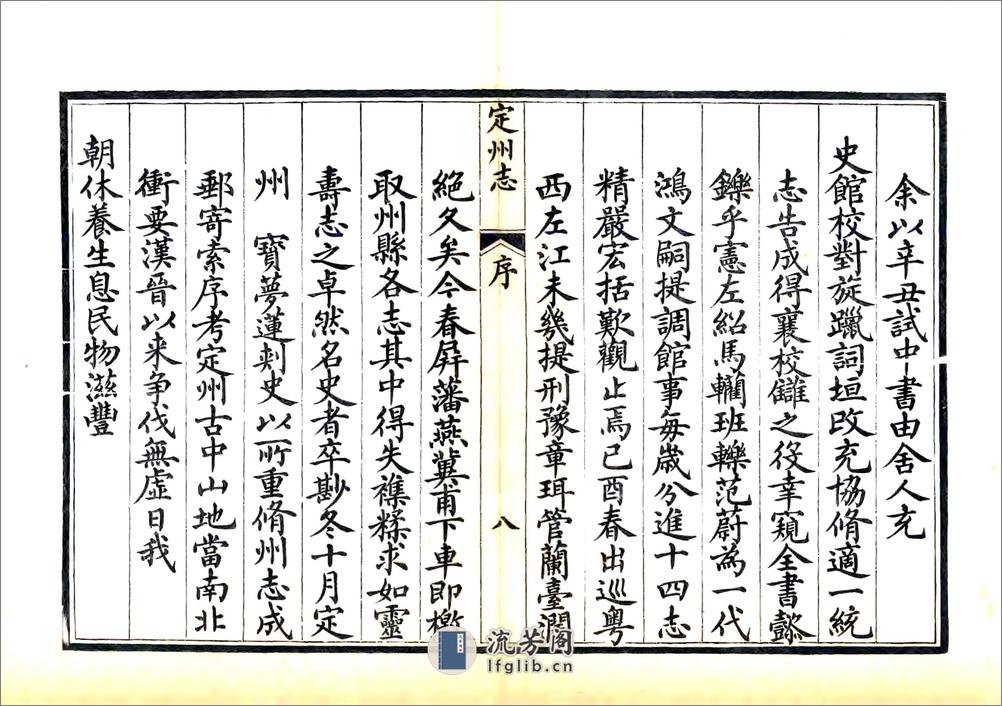 余以辛丑試中書由舍人充
史館校對旋躐詞垣改充協脩適一統
志告成得襄校讎之役幸窺全書懿
鑠乎憲左紹馬轥班轢范蔚為一代
鴻文嗣提調館事每歲分進十四志
精嚴宏括歎觀止焉已酉春出巡粤
西左江未幾提刑豫章珥管蘭臺濶
定州志
序
八
絕久矣今春屏藩燕冀甫下車即檄
取州縣各志其中得失襍糅求如靈
壽志之卓然名史者卒尠冬十月定
州 寶夢蓮刺史以所重脩州志成
郵寄索序考定州古中山地當南北
衝要漢晉以来争伐無虛日我
朝休養生息民物滋豐
流芳阁
lfglib.cn